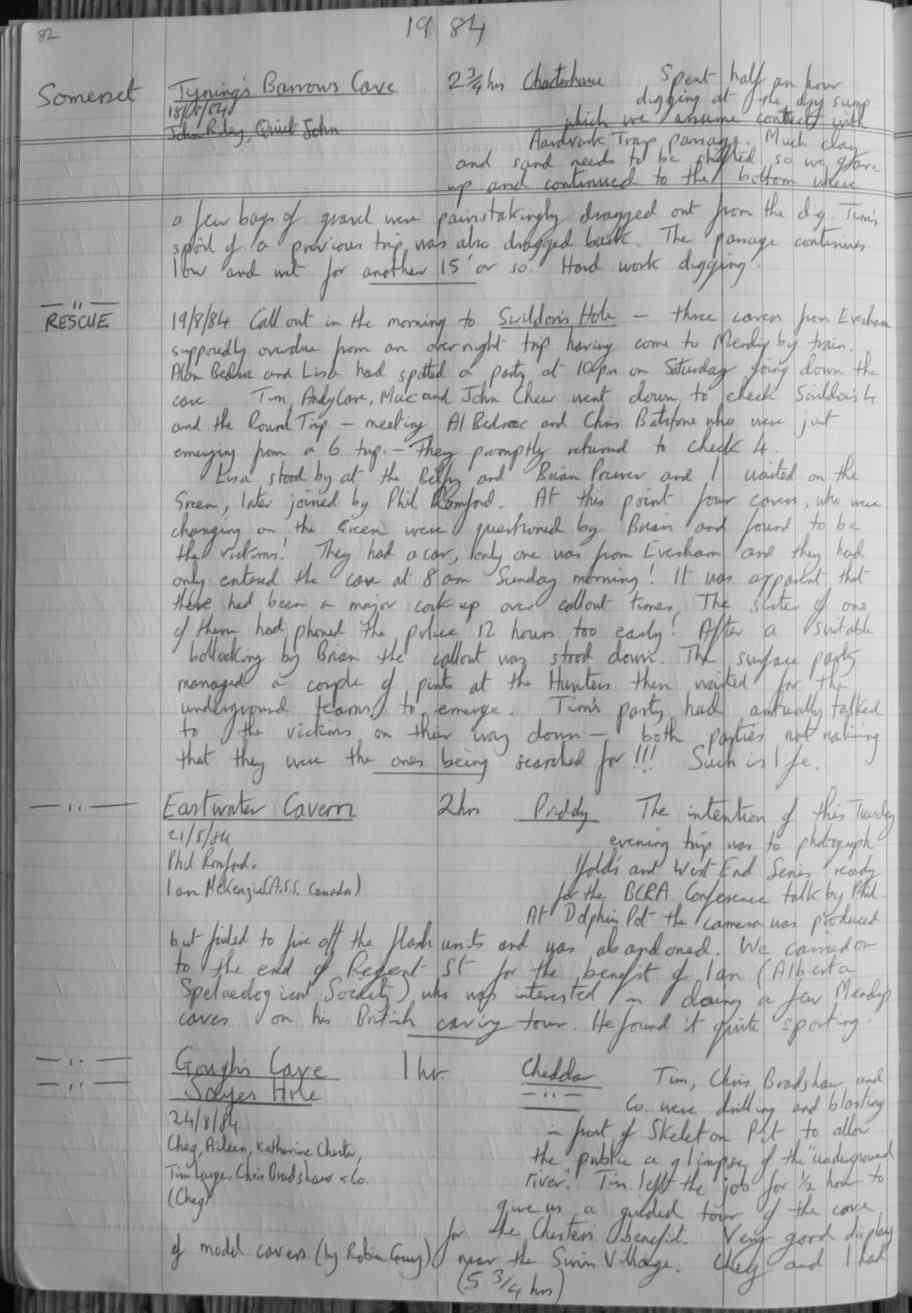 82
1984
Somerset Tyning's Barrows Cave 2 3/4 hrs Charterhouse Spent half an hour
18/8/84 digging at the dry sump
John Riley, Quiet John which we assume connects with
Aardvark Trap passage. Much clay
and sand needs to be shifted so we gave
up and continued to the bottom where
a few bags of gravel were painstakingly dragged out from the dig. Tim's
spoil of a previous trip was also dragged back. The passage continues
low and wet for another 15' or so. Hard work digging.
— " —
RESCUE 19/8/84 Call out in the morning to Swildon's Hole – three cavers from Evesham
supposedly overdue from an overnight trip having come to Mendip by train.
and Lisa had spotted a party at 10pm on Saturday going down the
cave. Tim, Andy Cave, Mac and John Chew went down to check Swildon's 4
and the Round Trip – meeting Al and Chris Batstone who were just
emerging from a 6 trip. – They promptly returned to check 4.
Lisa stood by at the Belfry and Brian Prewer and I waited on the
Green, later joined by Phil Romford. At this point four cavers, who were
changing on the Green were questioned by Brian and found to be
the victims! They had a car, only one was from Evesham and they had
only entered the cave at 8am Sunday morning! It was apparent that
there had been a major cock up over callout times. The sister of one
of them had phoned the police 12 hours too early! After a suitable
bollocking by Brian the callout was stood down. The surface party
managed a couple of pints at the Hunters then waited for the
underground teams to emerge. Tim's party had actually talked
to the victims on their way down – both parties not realising
that they were the ones being searched for!!! Such is life.
— " — Eastwater Cavern 2hrs Priddy The intention of this Tuesday
21/8/84 evening trip was to photograph
Phil Romford. Ifold's and West End Series ready
Ian McKenzie (A.S.S. Canada) for the BCRA Conference talk by Phil.
At Dolphin Pot the camera was produced
but failed to fire off the flash units and was abandoned. We carried on
to the end of Regent St for the benefit of Ian (Alberta
Speleological Society) who was interested in doing a few Mendip
caves on his British caving tour. He found it quite sporting.
— " — Gough's Cave 1 hr. Cheddar Tim, Chris Bradshaw and
— " — Sayes Hole — " — Co. were drilling and blasting
24/8/84 – part of Skeleton Pit to allow
Cheg, Aileen, Katharine Chester, the public a glimpse of the "underground
Tim Large, Chris Bradshaw & Co. river". Tim left the job for 1/2 hour to
(Cheg) give us a guided tour of the cave
for the Chesters benefit. Very good display
of model cavers (by Robin) near the Swiss Village. Cheg and I had
(5 3/4 hrs)